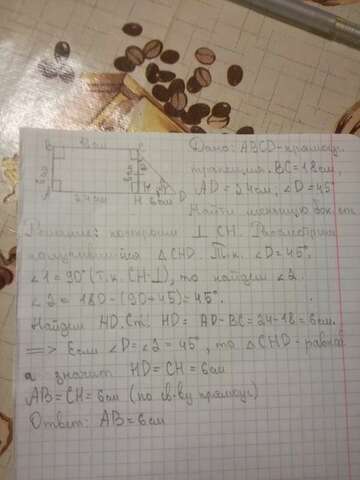 18 см
B C
Дано: ABCD - прямоуг.
трапеция. BC = 18 см,
AD = 24 см; ∠D = 45°
A 24 см H 6 см D
Найти меньшую бок. ст.
Решение: построим ⊥ CH. Рассмотрим
получившийся △CHD. Т.к. ∠D = 45°,
∠1 = 90° (т.к. CH-⊥), то найдём ∠2.
∠2 = 180 - (90+45) = 45°.
Найдём HD. Ст. HD = AD - BC = 24 - 18 = 6 см.
=> Если ∠D = ∠2 = 45°, то △CHD - равноб
а значит HD = CH = 6 см
AB = CH = 6 см (по св-ву прямоуг)
Ответ: AB = 6 см